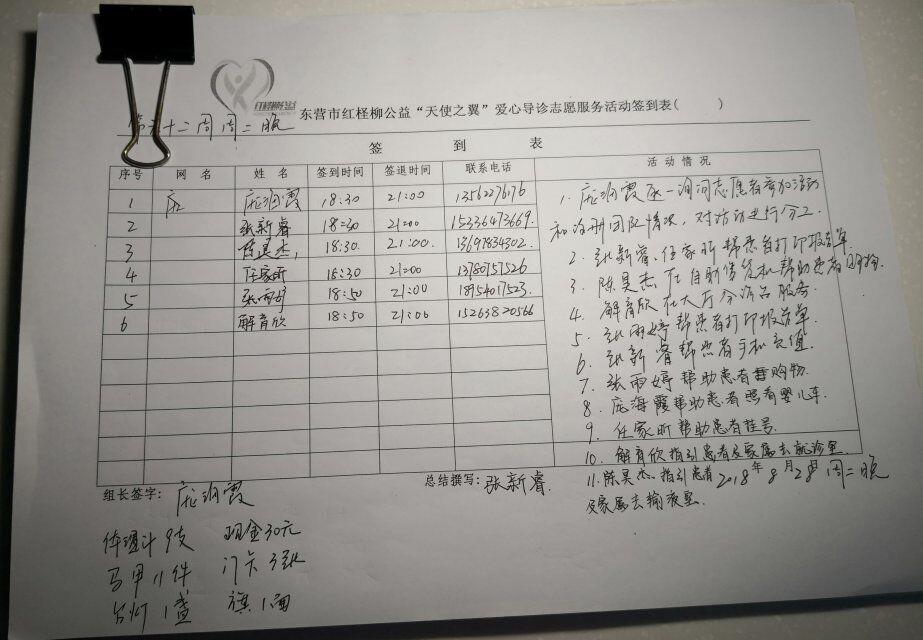 红柽柳公益
东营市红柽柳公益“天使之翼”爱心导诊志愿服务活动签到表( )
十二周周二晚
签 到 表
活动情况
序号 网名 姓名 签到时间 签退时间 联系电话
1 庞 庞海霞 18:30 21:00
2 张新睿 18:30 21:00 15336473669
3 陈昊杰 18:30 21:00 13697834302
4 任家昕 18:30 21:00 13780757526
5 张雨婷 18:50 21:00 18954017523
6 解育欣 18:50 21:00 15263820566
1. 庞海霞 志愿者参加活动
和 团队情况，对活动进行分工
2. 张新睿、任家昕帮患者打印报告单
3. 陈昊杰在自助售货机帮助患者购物
4. 解育欣在大厅分诊台服务
5. 张雨婷帮患者打印报告单
6. 张新睿帮患者手机充值
7. 张雨婷帮助患者购物
8. 庞海霞帮助患者照看婴儿车
9. 任家昕帮助患者挂号
10. 解育欣指引患者及家属去就诊室
11. 陈昊杰指引患者
及家属去输液室
2018年8月28日周二晚
组长签字：庞海霞
总结撰写：张新睿
体温计9支 现金30元
马甲11件 门卡3张
台灯1盏 旗1面